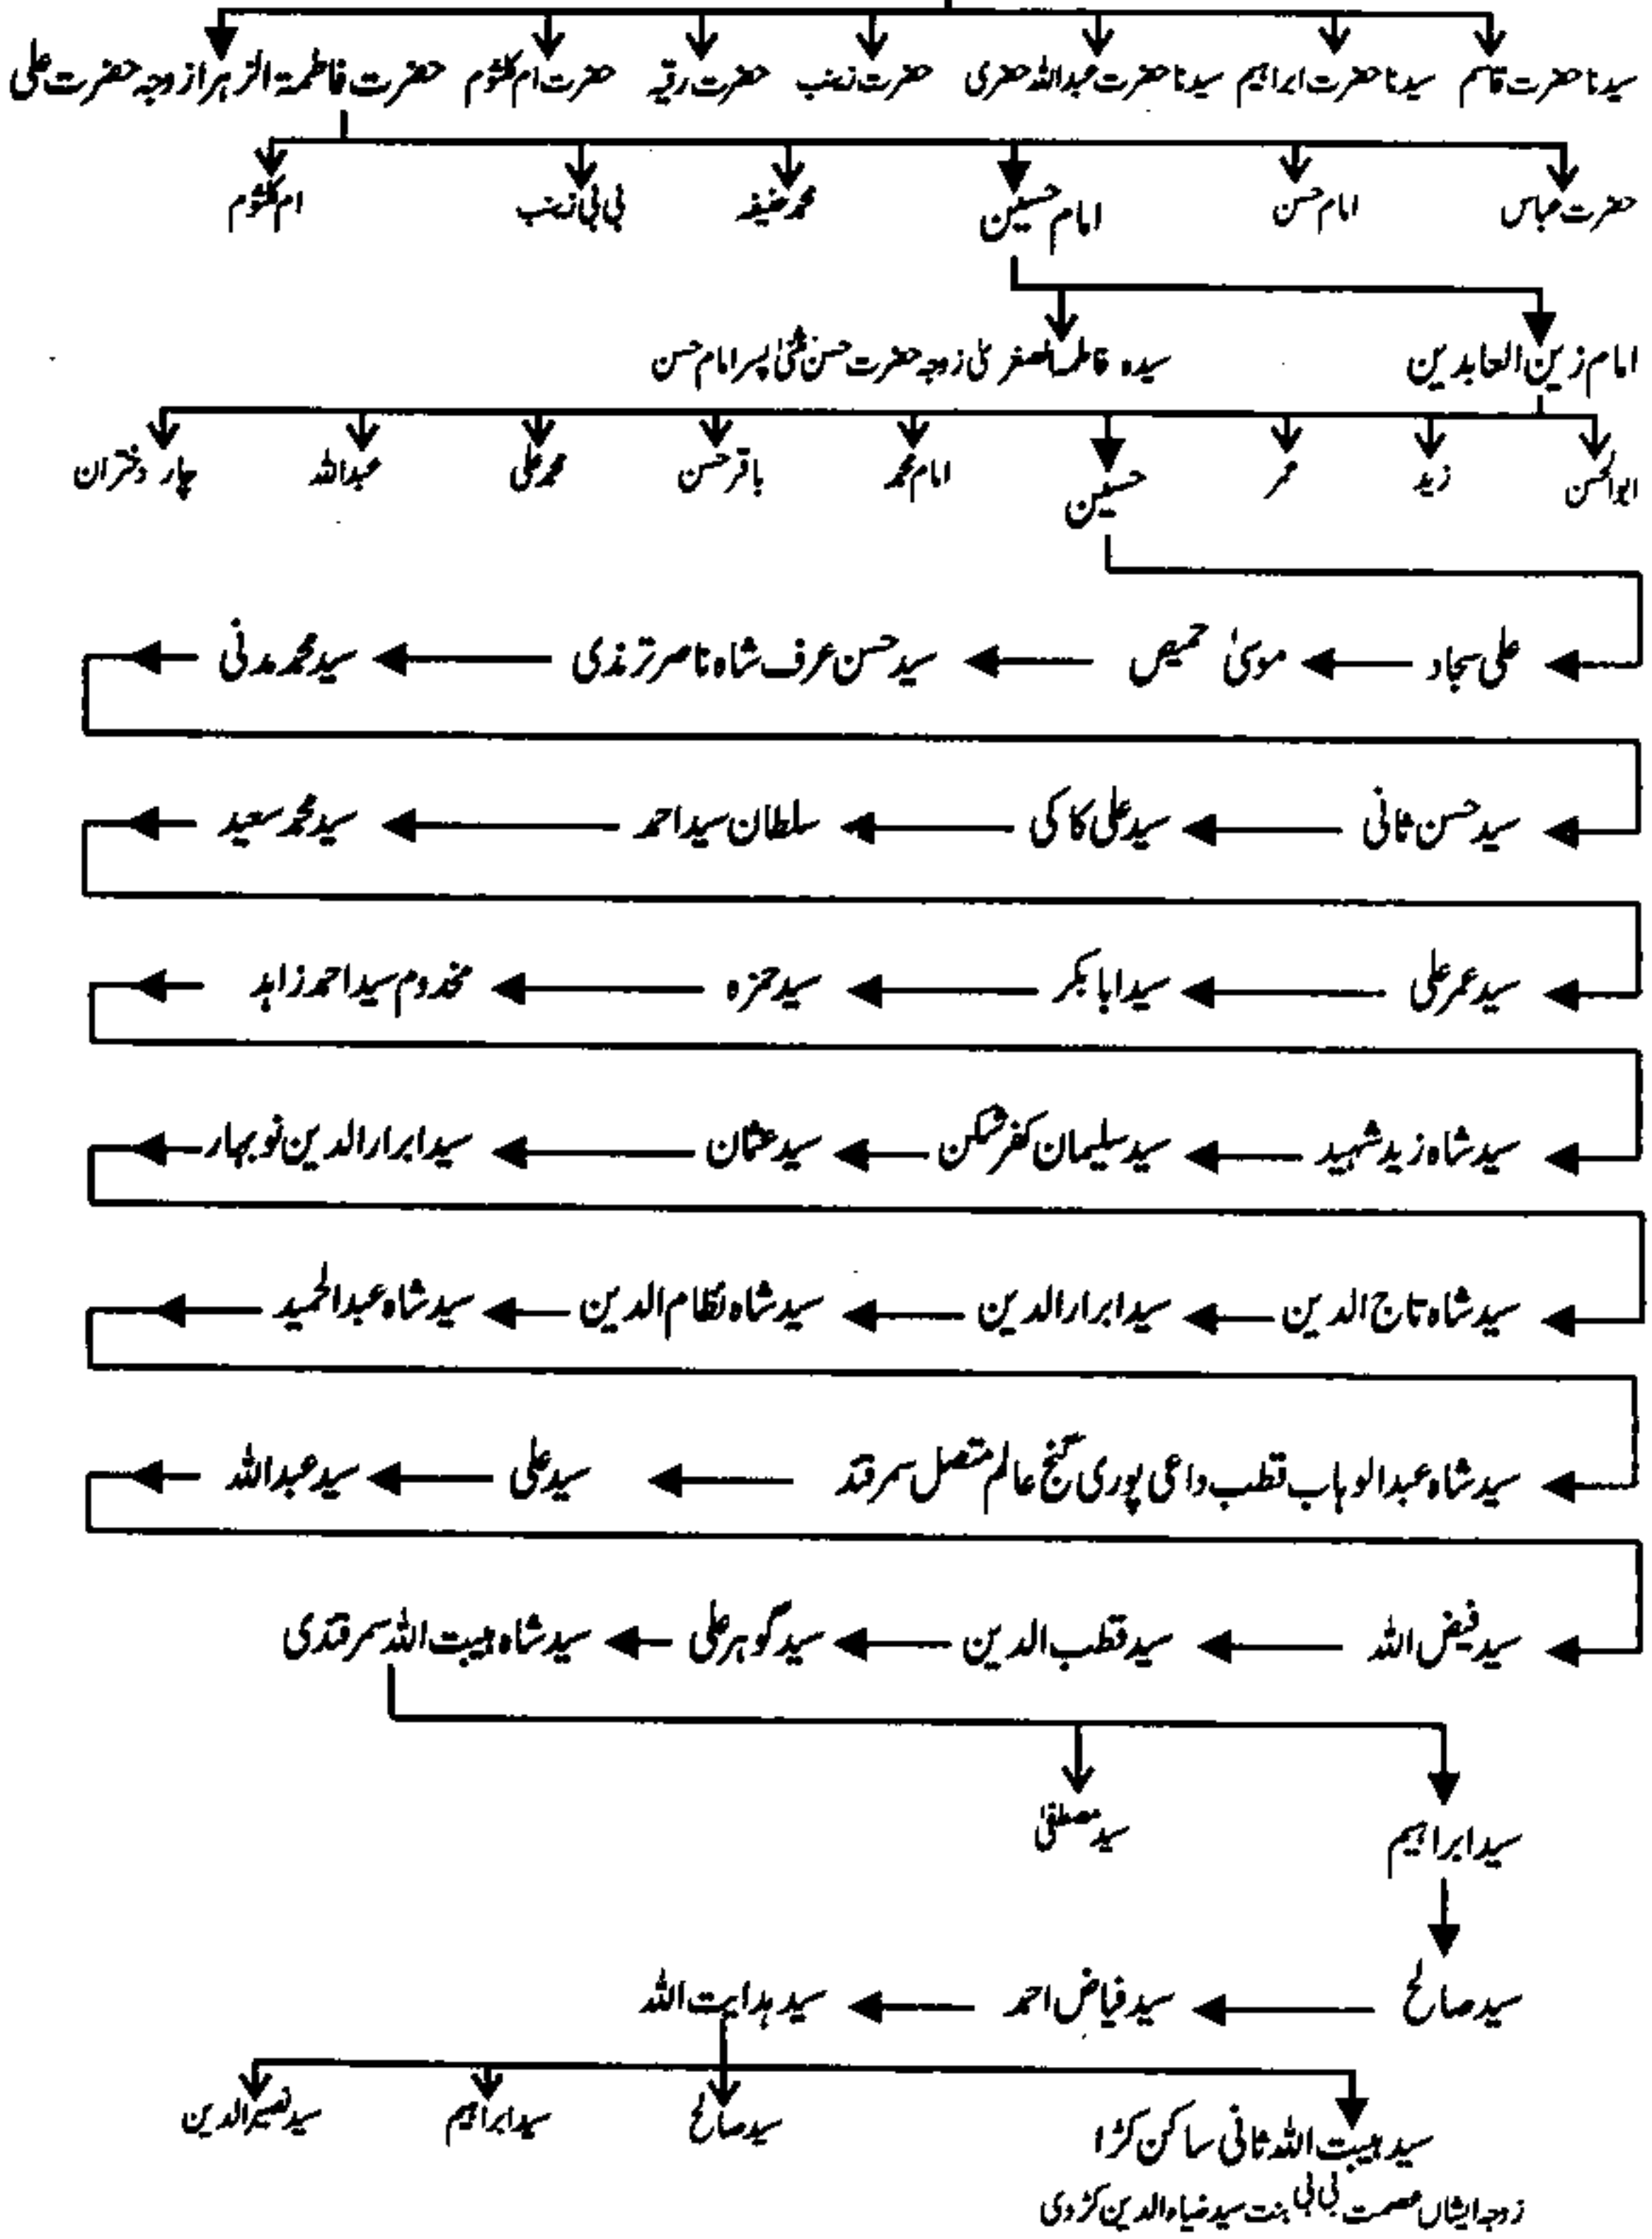 سیدنا حضرت قاسم سیدنا حضرت ابراہیم سیدنا حضرت عبداللہ حضری حضرت زینب حضرت رقیہ حضرت ام کلثوم حضرت فاطمۃ الزہرا زوجہ حضرت علی
حضرت عباس امام حسن امام حسین محمد حنیفہ بی بی زینب ام کلثوم
امام زین العابدین سیدہ فاطمہ صغریٰ زوجہ حضرت حسن مثنیٰ پسر امام حسن
ابوالحسن زید عمر حسین امام محمد باقر حسن محمد علی عبداللہ چار دختران
علی سجاد موسیٰ حمیص سید حسن عرف شاہ ناصر ترمذی سید محمد مدنی
سید حسن ثانی سید علی کاکی سلطان سید احمد سید محمد سعید
سید عمر علی سید ابابکر سید حمزہ مخدوم سید احمد زاہد
سید شاہ زید شہید سید سلیمان کفر شکن سید عثمان سید ابرار الدین نو بہار
سید شاہ تاج الدین سید ابرار الدین سید شاہ نظام الدین سید شاہ عبدالحمید
سید شاہ عبدالوہاب قطب داعی پوری گنج عالم متصل سمرقند سید علی سید عبداللہ
سید فیض اللہ سید قطب الدین سید گوہر علی سید شاہ ہیبت اللہ سمرقندی
سید ابراہیم سید مصطفیٰ
سید صالح سید فیاض احمد سید ہدایت اللہ
سید ہیبت اللہ ثانی ساکن کڑا سید صالح سید ابراہیم سید نصیر الدین
زوجہ ایشاں عصمت بی بی بنت سید ضیاء الدین کڑوی